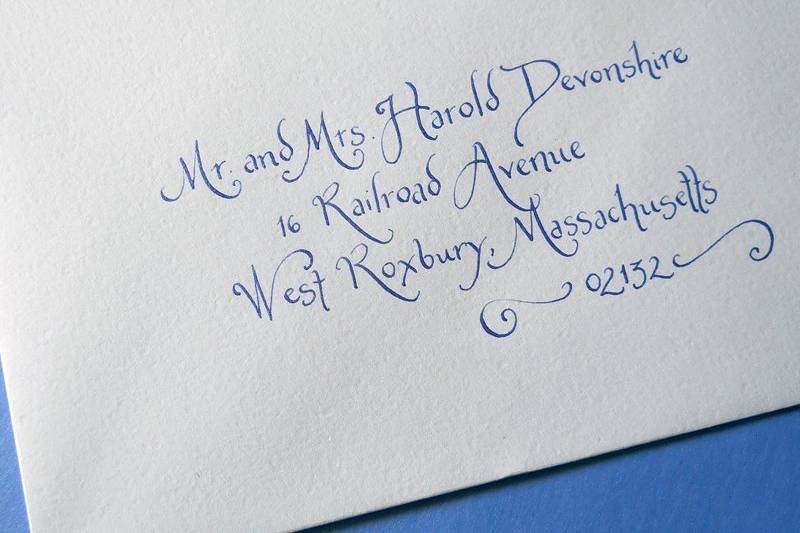 Mr. and Mrs. Harold Devonshire
16 Railroad Avenue
West Roxbury, Massachusetts
02132